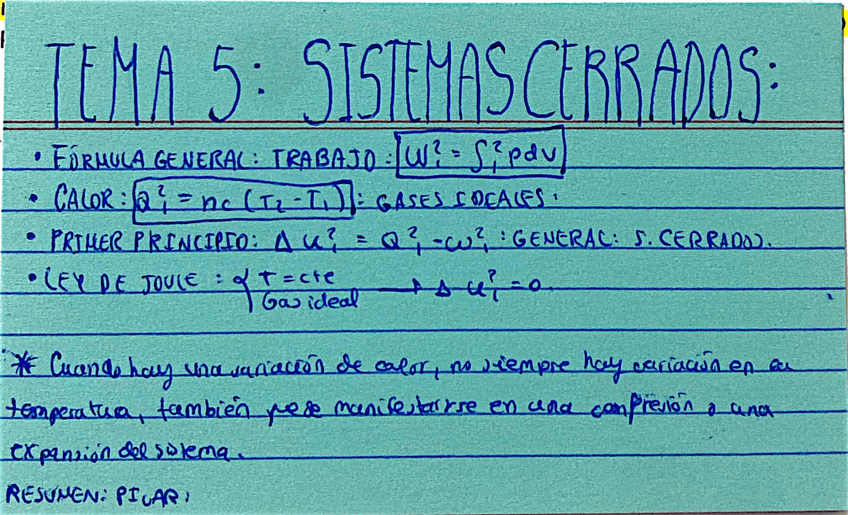 TEMA 5: SISTEMAS CERRADOS:
• FÓRMULA GENERAL: TRABAJO: W₁² = ∫₁² pdv
• CALOR: Q₁² = nc (T₂ - T₁): GASES IDEALES.
• PRIMER PRINCIPIO: Δ u₁² = Q₁² - w₁²: GENERAL: S. CERRADO.
• LEY DE JOULE: { T = cte
Gas ideal → Δ u₁² = 0.
* Cuando hay una variación de calor, no siempre hay variación en su
temperatura, también puede manifestarse en una compresión o una
expansión del sistema.
RESUMEN: PILAR: